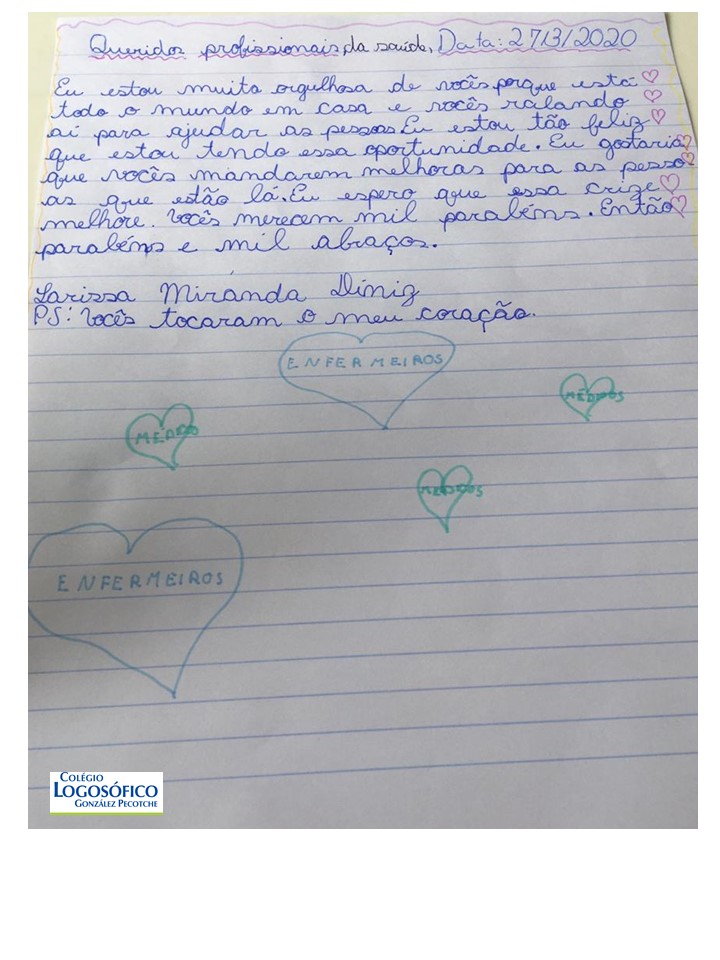 Queridos profissionais, da saúde, Data: 27/3/2020
Eu estou muito orgulhosa de vocês porque está
todo o mundo em casa e vocês ralando
aí para ajudar as pessoas. Eu estou tão feliz
que estou tendo essa oportunidade. Eu gostaria
que vocês mandarem melhoras para as pesso
as que estão lá. Eu espero que essa crize
melhore. Vocês merecem mil parabéns. Então
parabéns e mil abraços.
Larissa Miranda Diniz
PS: Vocês tocaram o meu coração.
ENFERMEIROS
MÉDICOS
MÉDICO
MÉDICOS
ENFERMEIROS
COLÉGIO
LOGOSÓFICO
GONZÁLEZ PECOTCHE